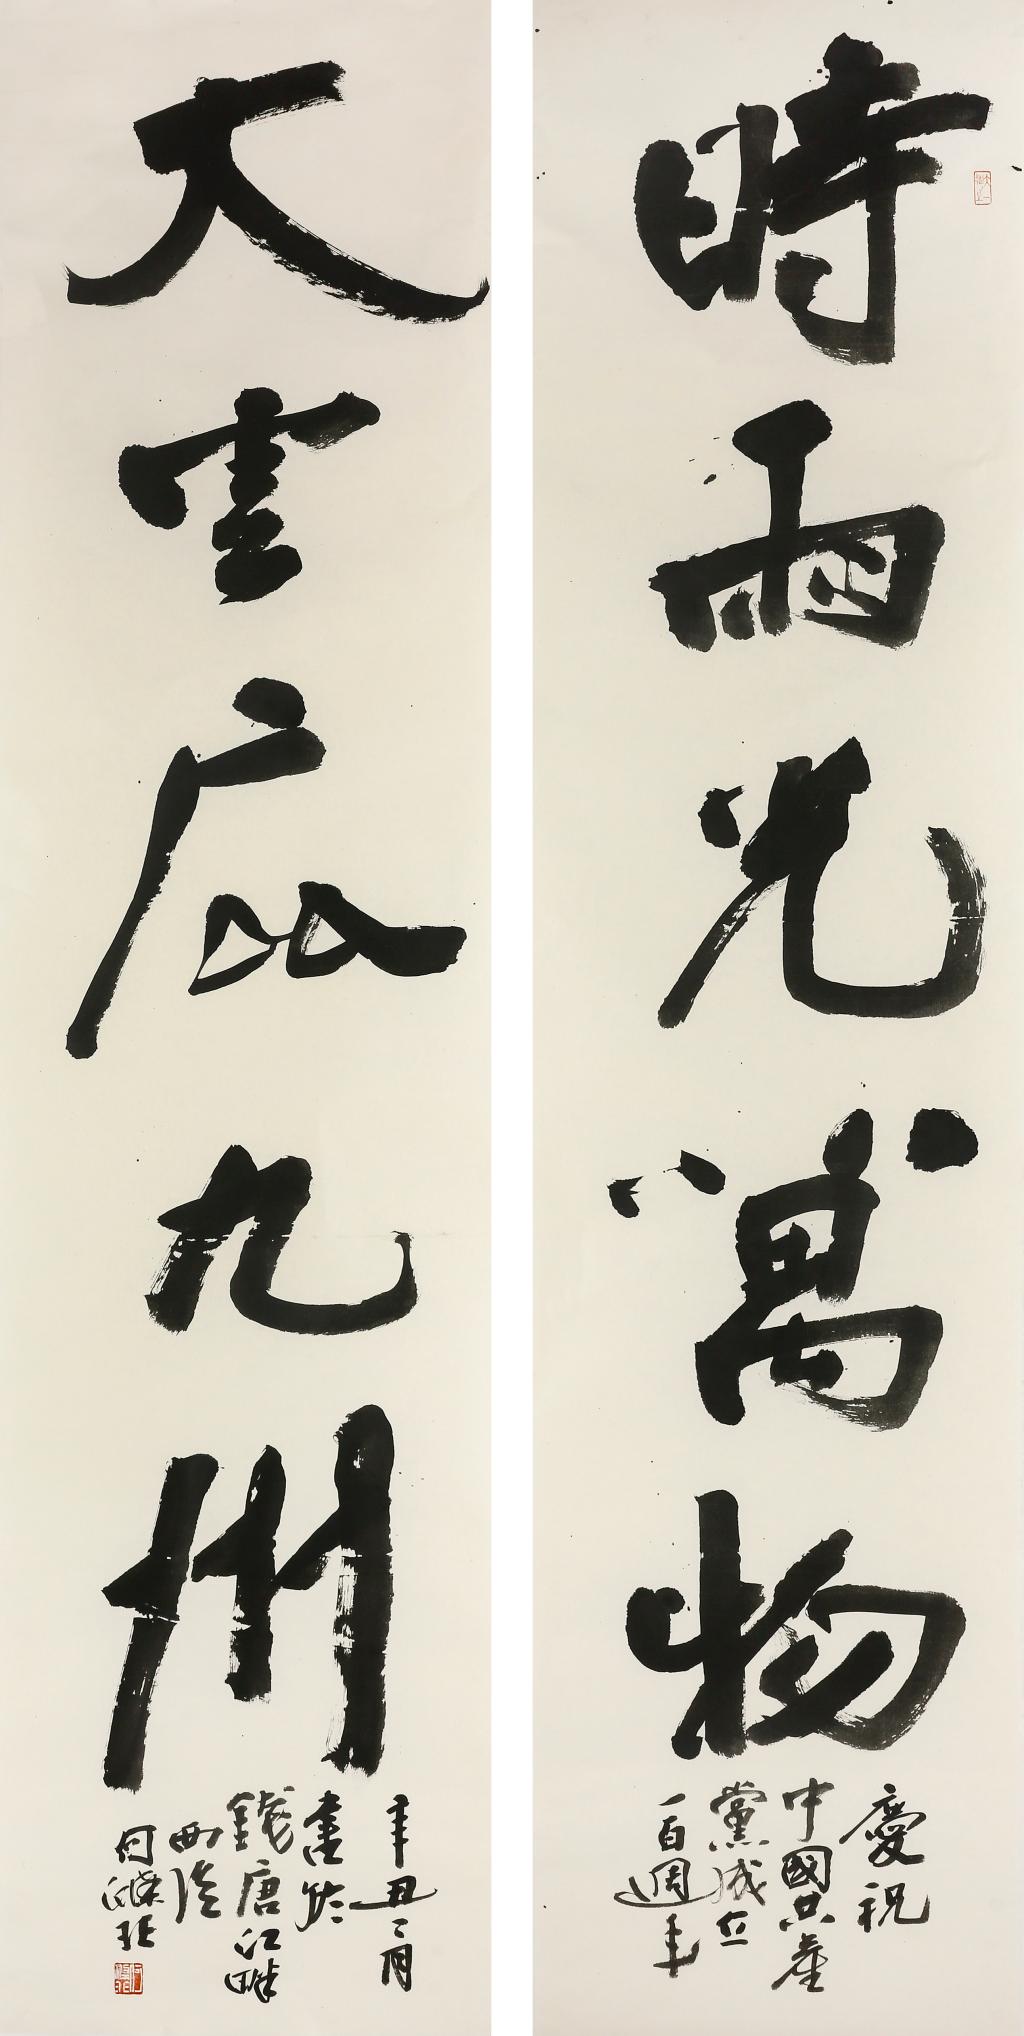 時雨光萬物
慶祝
中國共產
黨成立
一百週年
大雲庇九州
辛丑二月
書於
錢唐江畔
西
何滌非